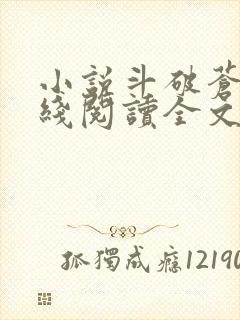 小說斗破蒼
綫閱讀全文
孤獨成癮12190